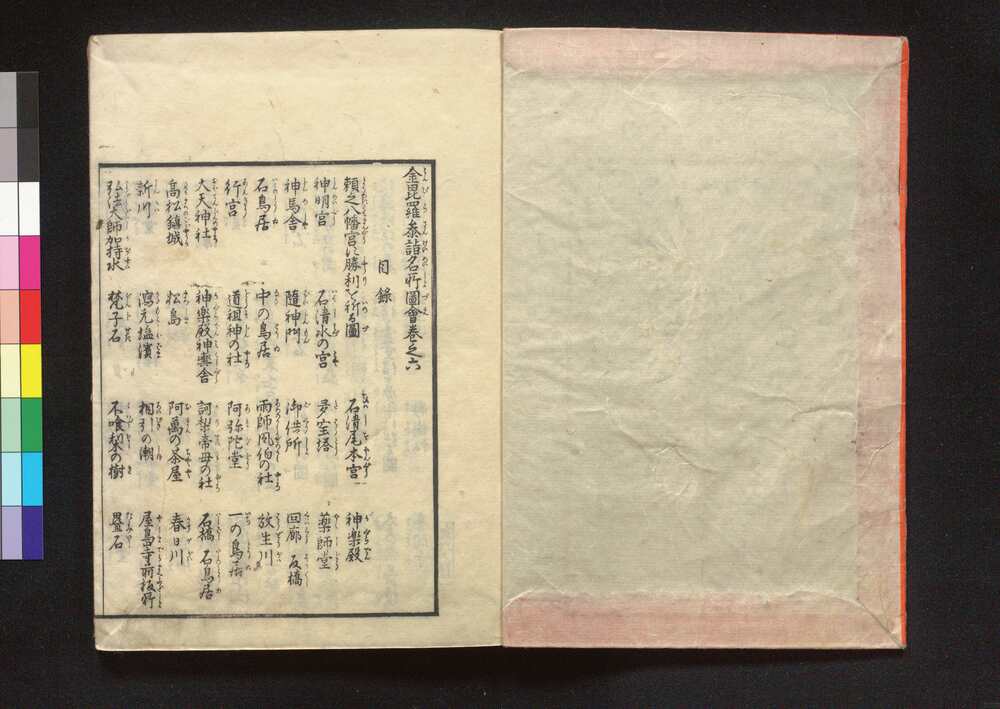 金毘羅參詣名所圖會卷之六
目錄
頼之八幡宮に勝利を祈る圖 石清尾本宮 神樂殿
神明宮 石清水の宮 多宝塔 薬師堂
神馬舎 隨神門 御供所 回廊 反橋
石鳥居 中の鳥居 雨師風伯の社 放生川
行宮 道祖神の社 阿弥陀堂 一の鳥居
大天神社 神樂殿神輿舎 訶梨帝母の社 石橋 石鳥居
髙松鎮城 松島 阿萬の茶屋 春日川
新川 瀉元塩濱 相引の潮 屋島寺前板所
弘法大師加持水 梵字石 不喰梨の樹 畳石